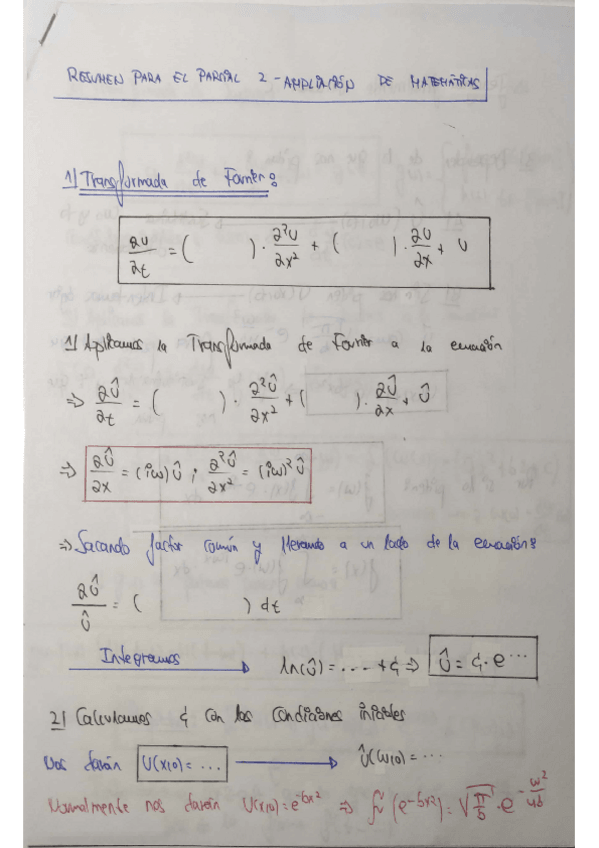 RESUMEN PARA EL PARCIAL 2 - AMPLIACIÓN DE MATEMÁTICAS
1) Transformada de Fourier:
∂U/∂t = ( ) · ∂²U/∂x² + ( ) · ∂U/∂x + U
1) Aplicamos la Transformada de Fourier a la ecuación
⇒ ∂Û/∂t = ( ) · ∂²Û/∂x² + ( ) · ∂Û/∂x + Û
⇒ ∂Û/∂x = (iω)Û ; ∂²Û/∂x² = (iω)²Û
⇒ Sacando factor común y llevando a un lado de la ecuación:
∂Û/Û = ( ) dt
Integramos → ln(Û) = .... + C₁ ⇒ Û = C₁ · e^...
2) Calculamos C₁ con las condiciones iniciales
Nos darán U(x,0) = ... → Û(ω,0) = ...
Normalmente nos darán U(x,0) = e^-bx² ⇒ (e^-bx²) = √π/b · e^-ω²/4b